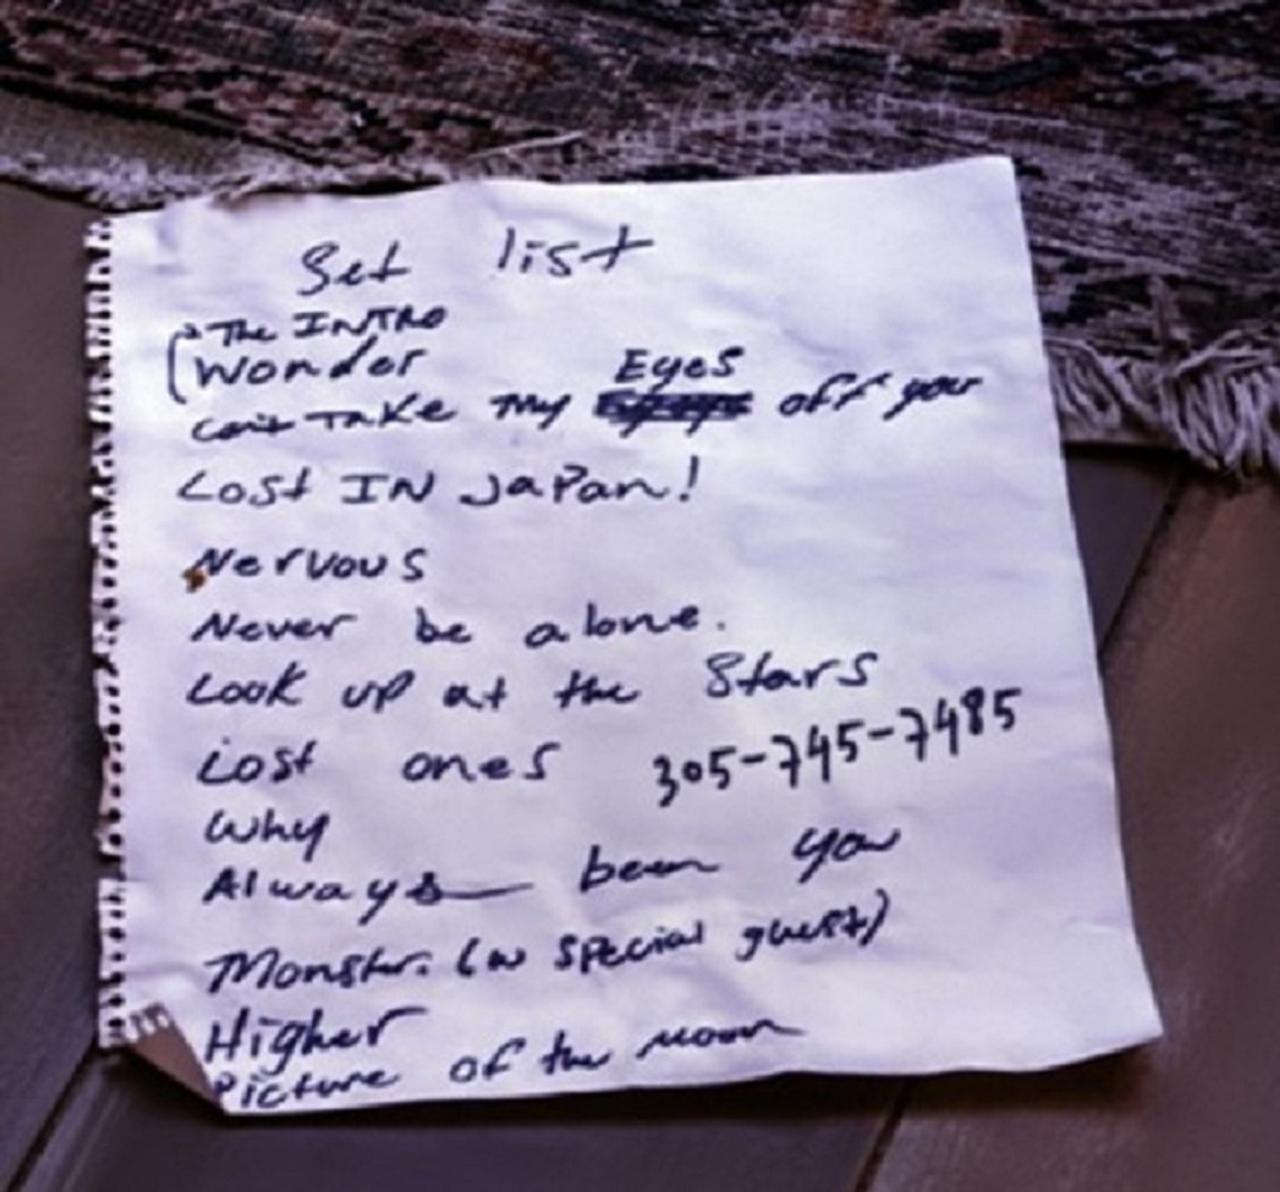 Set list
The INTRO
Wonder
can't TaKe my Eyes off you
Lost IN JaPan!
Nervous
Never be alone.
Look up at the Stars
Lost ones 305-745-7485
Why
Always been you
Monster. (w special guest)
Higher
Picture of the moon